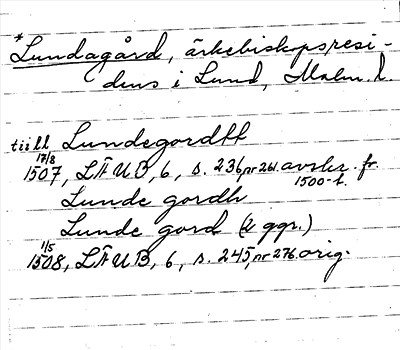 *Lundagård, ärkebiskopsresi-
dens i Lund, Malm. l.
tiill Lundegordtt
17/8
1507, LÄUB, 6, s. 236, nr 261. avskr. fr.
1500-t.
Lunde gordh
Lunde gord (2 ggr.)
1/5
1508, LÄUB, 6, s. 245, nr 276. orig.